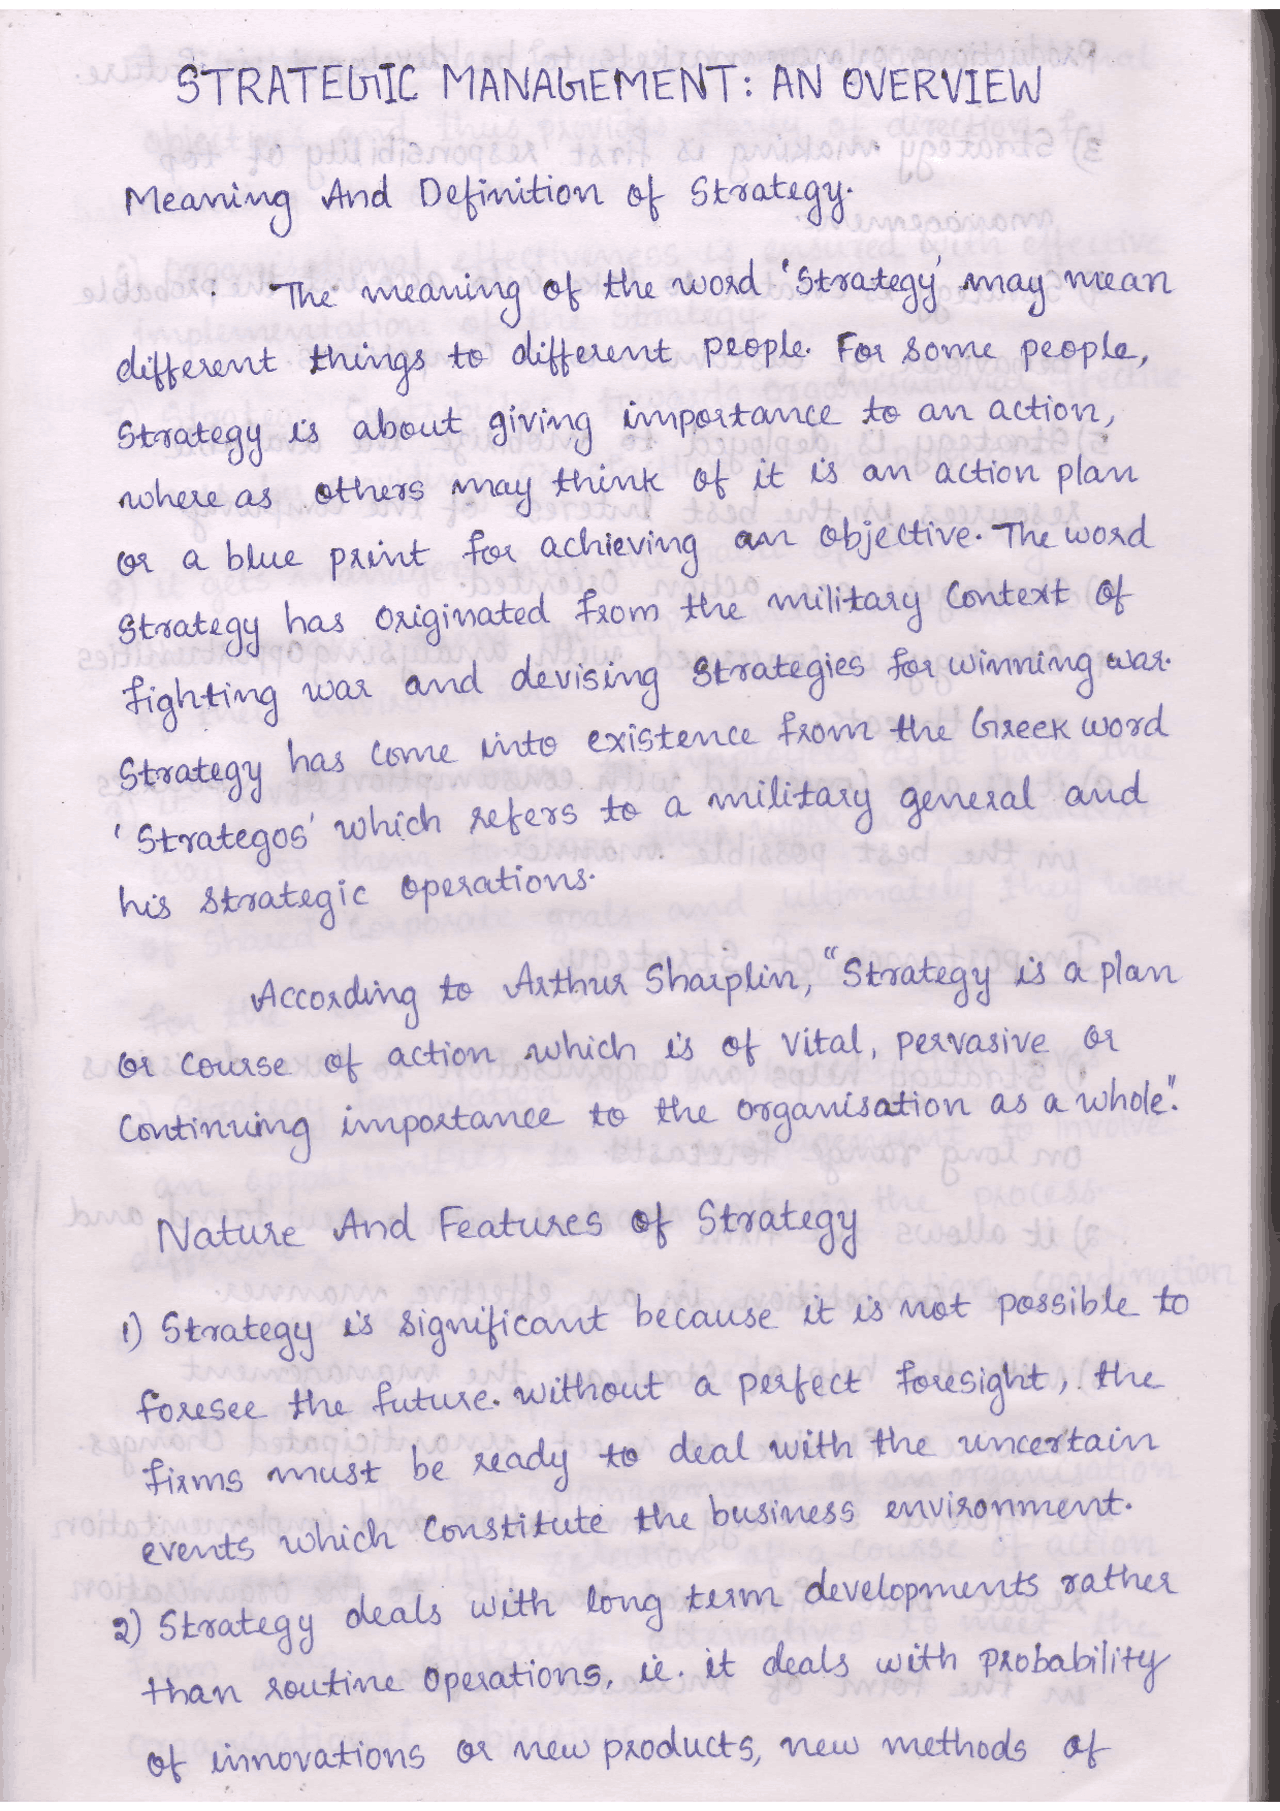 STRATEGIC MANAGEMENT: AN OVERVIEW
Meaning And Definition of Strategy.
The meaning of the word 'Strategy' may mean
different things to different people. For some people,
Strategy is about giving importance to an action,
where as others may think of it is an action plan
or a blue print for achieving an objective. The word
Strategy has originated from the military context of
fighting war and devising strategies for winning war.
Strategy has come into existence from the Greek word
'Strategos' which refers to a military general and
his strategic operations.
According to Arthur Sharplin, "Strategy is a plan
or course of action which is of vital, pervasive or
continuing importance to the organisation as a whole".
Nature And Features of Strategy
1) Strategy is significant because it is not possible to
foresee the future. without a perfect foresight, the
firms must be ready to deal with the uncertain
events which constitute the business environment.
2) Strategy deals with long term developments rather
than routine operations, ie. it deals with probability
of innovations or new products, new methods of